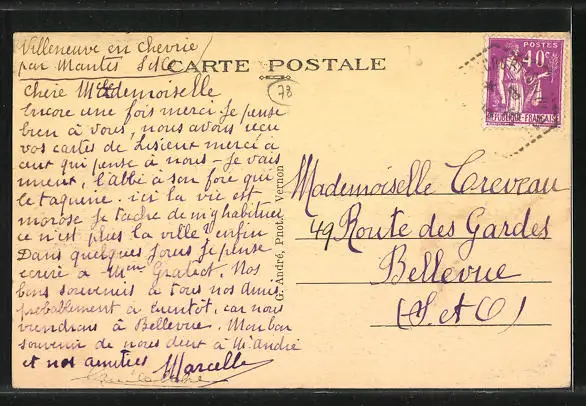 Villeneuve en Chevrie
par Mantes S&O
CARTE POSTALE
78
POSTES
40c
REPUBLIQUE FRANÇAISE
Chere Mademoiselle
Encore une fois merci je pense
bien à vous, nous avons reçu
vos cartes de Lisieux merci à
ceux qui pense à nous - je vais
mieux, l'abbé a son foie qui
le taquine. ici la vie est
morose je tache de m'habituer
ce n'est plus la ville enfin
Dans quelques jours je pense
écrire à Mme Gratiot. Nos
bons souvenirs à tous nos amis
probablement à bientôt, car nous
viendrons à Bellevue. Mon bon
souvenir de nous deux à Mr André
et nos amitiés Marcelle
G. André, Phot., Vernon
Mademoiselle Creveau
49 Route des Gardes
Bellevue
(S. et O)